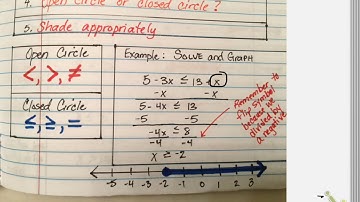 4. Open circle or closed circle?
5. Shade appropriately
Open Circle
<, >, ≠
Closed Circle
≤, ≥, =
Example: Solve and Graph
5 - 3x ≤ 13 + x
-x -x
5 - 4x ≤ 13
-5 -5
-4x ≤ 8
-4 -4
x ≥ -2
Remember to
flip symbol
because we
divided by
a negative
-5 -4 -3 -2 -1 0 1 2 3